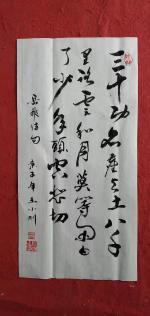 三十功名尘与土八千
里路云和月莫等闲白
了少年头空悲切
岳飞诗句 庚子年王小川